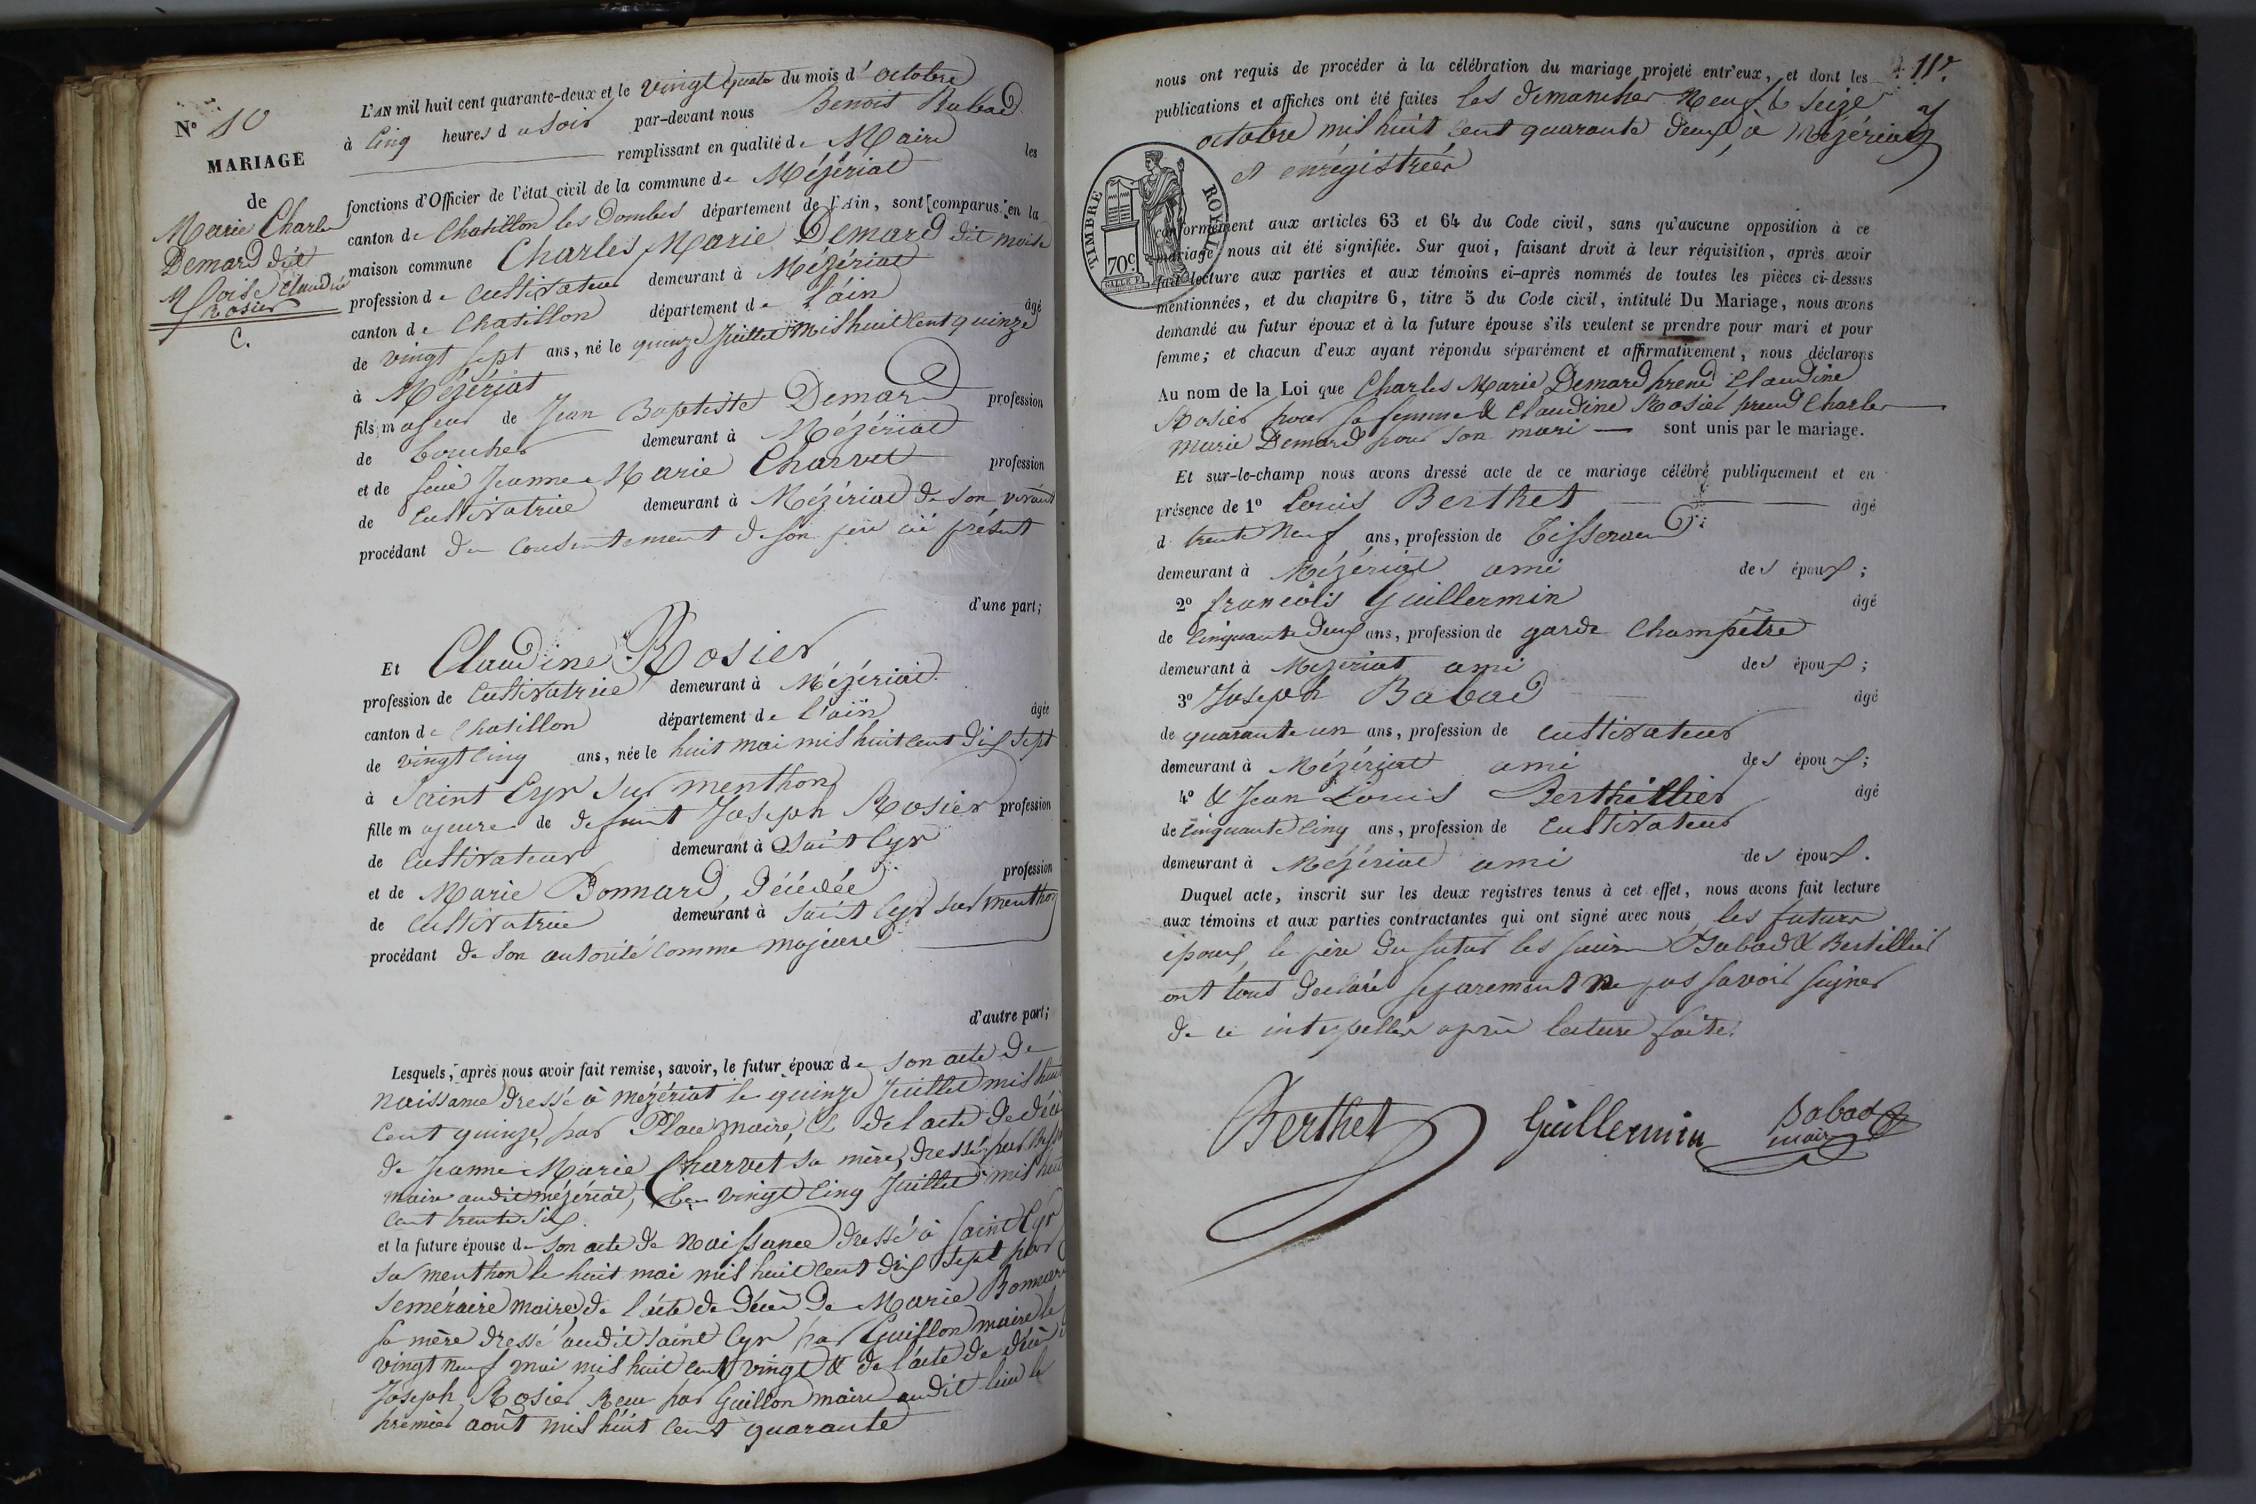 N° 10
MARIAGE
de
Marie Charles
Demard dit
Moise & Claudine
Rosier
C.
L'AN mil huit cent quarante-deux et le vingt quatre du mois d'octobre
à cinq heures du soir par-devant nous Benoit Babad
remplissant en qualité de Maire les
fonctions d'Officier de l'état civil de la commune de Mézériat
canton de Chatillon les Dombes département de l'Ain, sont comparus en la
maison commune Charles Marie Demard dit moise
profession de cultivateur demeurant à Mézériat
canton de Chatillon département de l'ain âgé
de vingt sept ans, né le quinze Juillet mil huit cent quinze
à Mézériat
fils majeur de Jean Baptiste Demard profession
de boucher demeurant à Mézériat
et de feue Jeanne Marie Charvet profession
de cultivatrice demeurant à Mézériat de son vivant
procédant du consentement de son père ici présent
d'une part;
Et Claudine Rosier
profession de cultivatrice demeurant à Mézériat
canton de Chatillon département de l'ain âgée
de vingt cinq ans, née le huit mai mil huit cent dix sept
à Saint Cyr sur menthon
fille majeure de defunt Joseph Rosier profession
de cultivateur demeurant à Saint Cyr
et de Marie Bonnard, décédée profession
de cultivatrice demeurant à Saint Cyr sur menthon
procédant de son autorité comme majeure
d'autre part;
Lesquels, après nous avoir fait remise, savoir, le futur époux de son acte de
naissance dressé à mézériat le quinze Juillet mil huit
cent quinze, par Place maire, & de l'acte de décè
de Jeanne Marie Charvet sa mère, dressé par
maire audit mézériat, le vingt cinq Juillet mil huit
cent trente six.
et la future épouse de son acte de naissance dressé à Saint Cyr
sur menthon le huit mai mil huit cent dix sept par
Seméraire maire, de l'acte de décès de Marie Bonnard
sa mère dressé audit Saint Cyr par Guillon maire le
vingt neuf mai mil huit cent vingt & de l'acte de décè
Joseph Rosier Recu par Guillon maire audit lieu le
premier août mil huit cent quarante
11.
nous ont requis de procéder à la célébration du mariage projeté entr'eux, et dont les
publications et affiches ont été faites les dimanches neuf & seize
octobre mil huit cent quarante deux, à Mézériat
et enrégistrées
TIMBRE ROYAL
70c.
conformément aux articles 63 et 64 du Code civil, sans qu'aucune opposition à ce
mariage nous ait été signifiée. Sur quoi, faisant droit à leur réquisition, après avoir
fait lecture aux parties et aux témoins ci-après nommés de toutes les pièces ci-dessus
mentionnées, et du chapitre 6, titre 5 du Code civil, intitulé Du Mariage, nous avons
demandé au futur époux et à la future épouse s'ils veulent se prendre pour mari et pour
femme; et chacun d'eux ayant répondu séparément et affirmativement, nous déclarons
Au nom de la Loi que Charles Marie Demard prend Claudine
Rosier pour sa femme & Claudine Rosier prend Charles
Marie Demard pour son mari — sont unis par le mariage.
Et sur-le-champ nous avons dressé acte de ce mariage célébré publiquement et en
présence de 1° Louis Berthet âgé
d trente neuf ans, profession de Tisserand
demeurant à Mézériat ami des époux;
2° françois Guillermin âgé
de cinquante deux ans, profession de garde champêtre
demeurant à Mézériat ami des époux;
3° Joseph Babad âgé
de quarante un ans, profession de cultivateur
demeurant à Mézériat ami des époux;
4° & Jean Louis Berthillier âgé
de cinquante cinq ans, profession de cultivateur
demeurant à Mézériat ami des époux.
Duquel acte, inscrit sur les deux registres tenus à cet effet, nous avons fait lecture
aux témoins et aux parties contractantes qui ont signé avec nous les futurs
époux, le père du futur les sieurs Babad & Bertillier
ont tous declaré séparement ne pas savoir signer
de ce interpellés après lecture faite.
Berthet
Guillermin
Babad
maire